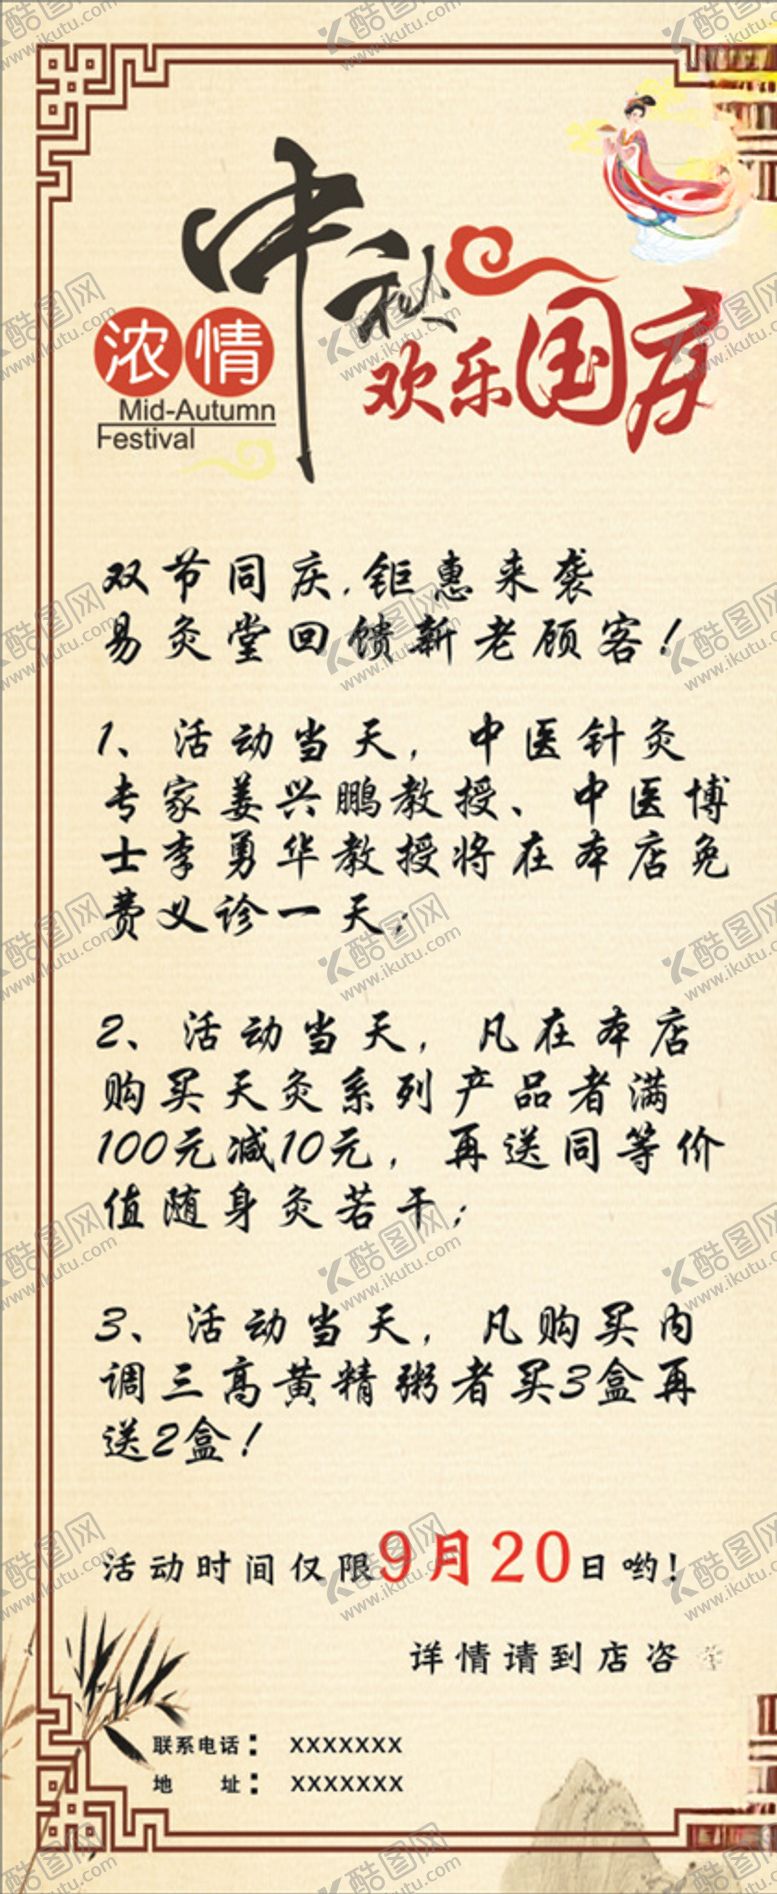 浓情
中秋
欢乐国庆
Mid-Autumn
Festival
双节同庆,钜惠来袭
易灸堂回馈新老顾客!
1、活动当天,中医针灸
专家姜兴鹏教授、中医博
士李勇华教授将在本店免
费义诊一天;
2、活动当天,凡在本店
购买天灸系列产品者满
100元减10元,再送同等价
值随身灸若干;
3、活动当天,凡购买内
调三高黄精粥者买3盒再
送2盒!
活动时间仅限9月20日哟!
详情请到店咨
联系电话: XXXXXXX
地 址: XXXXXXX
酷图网
www.ikutu.com